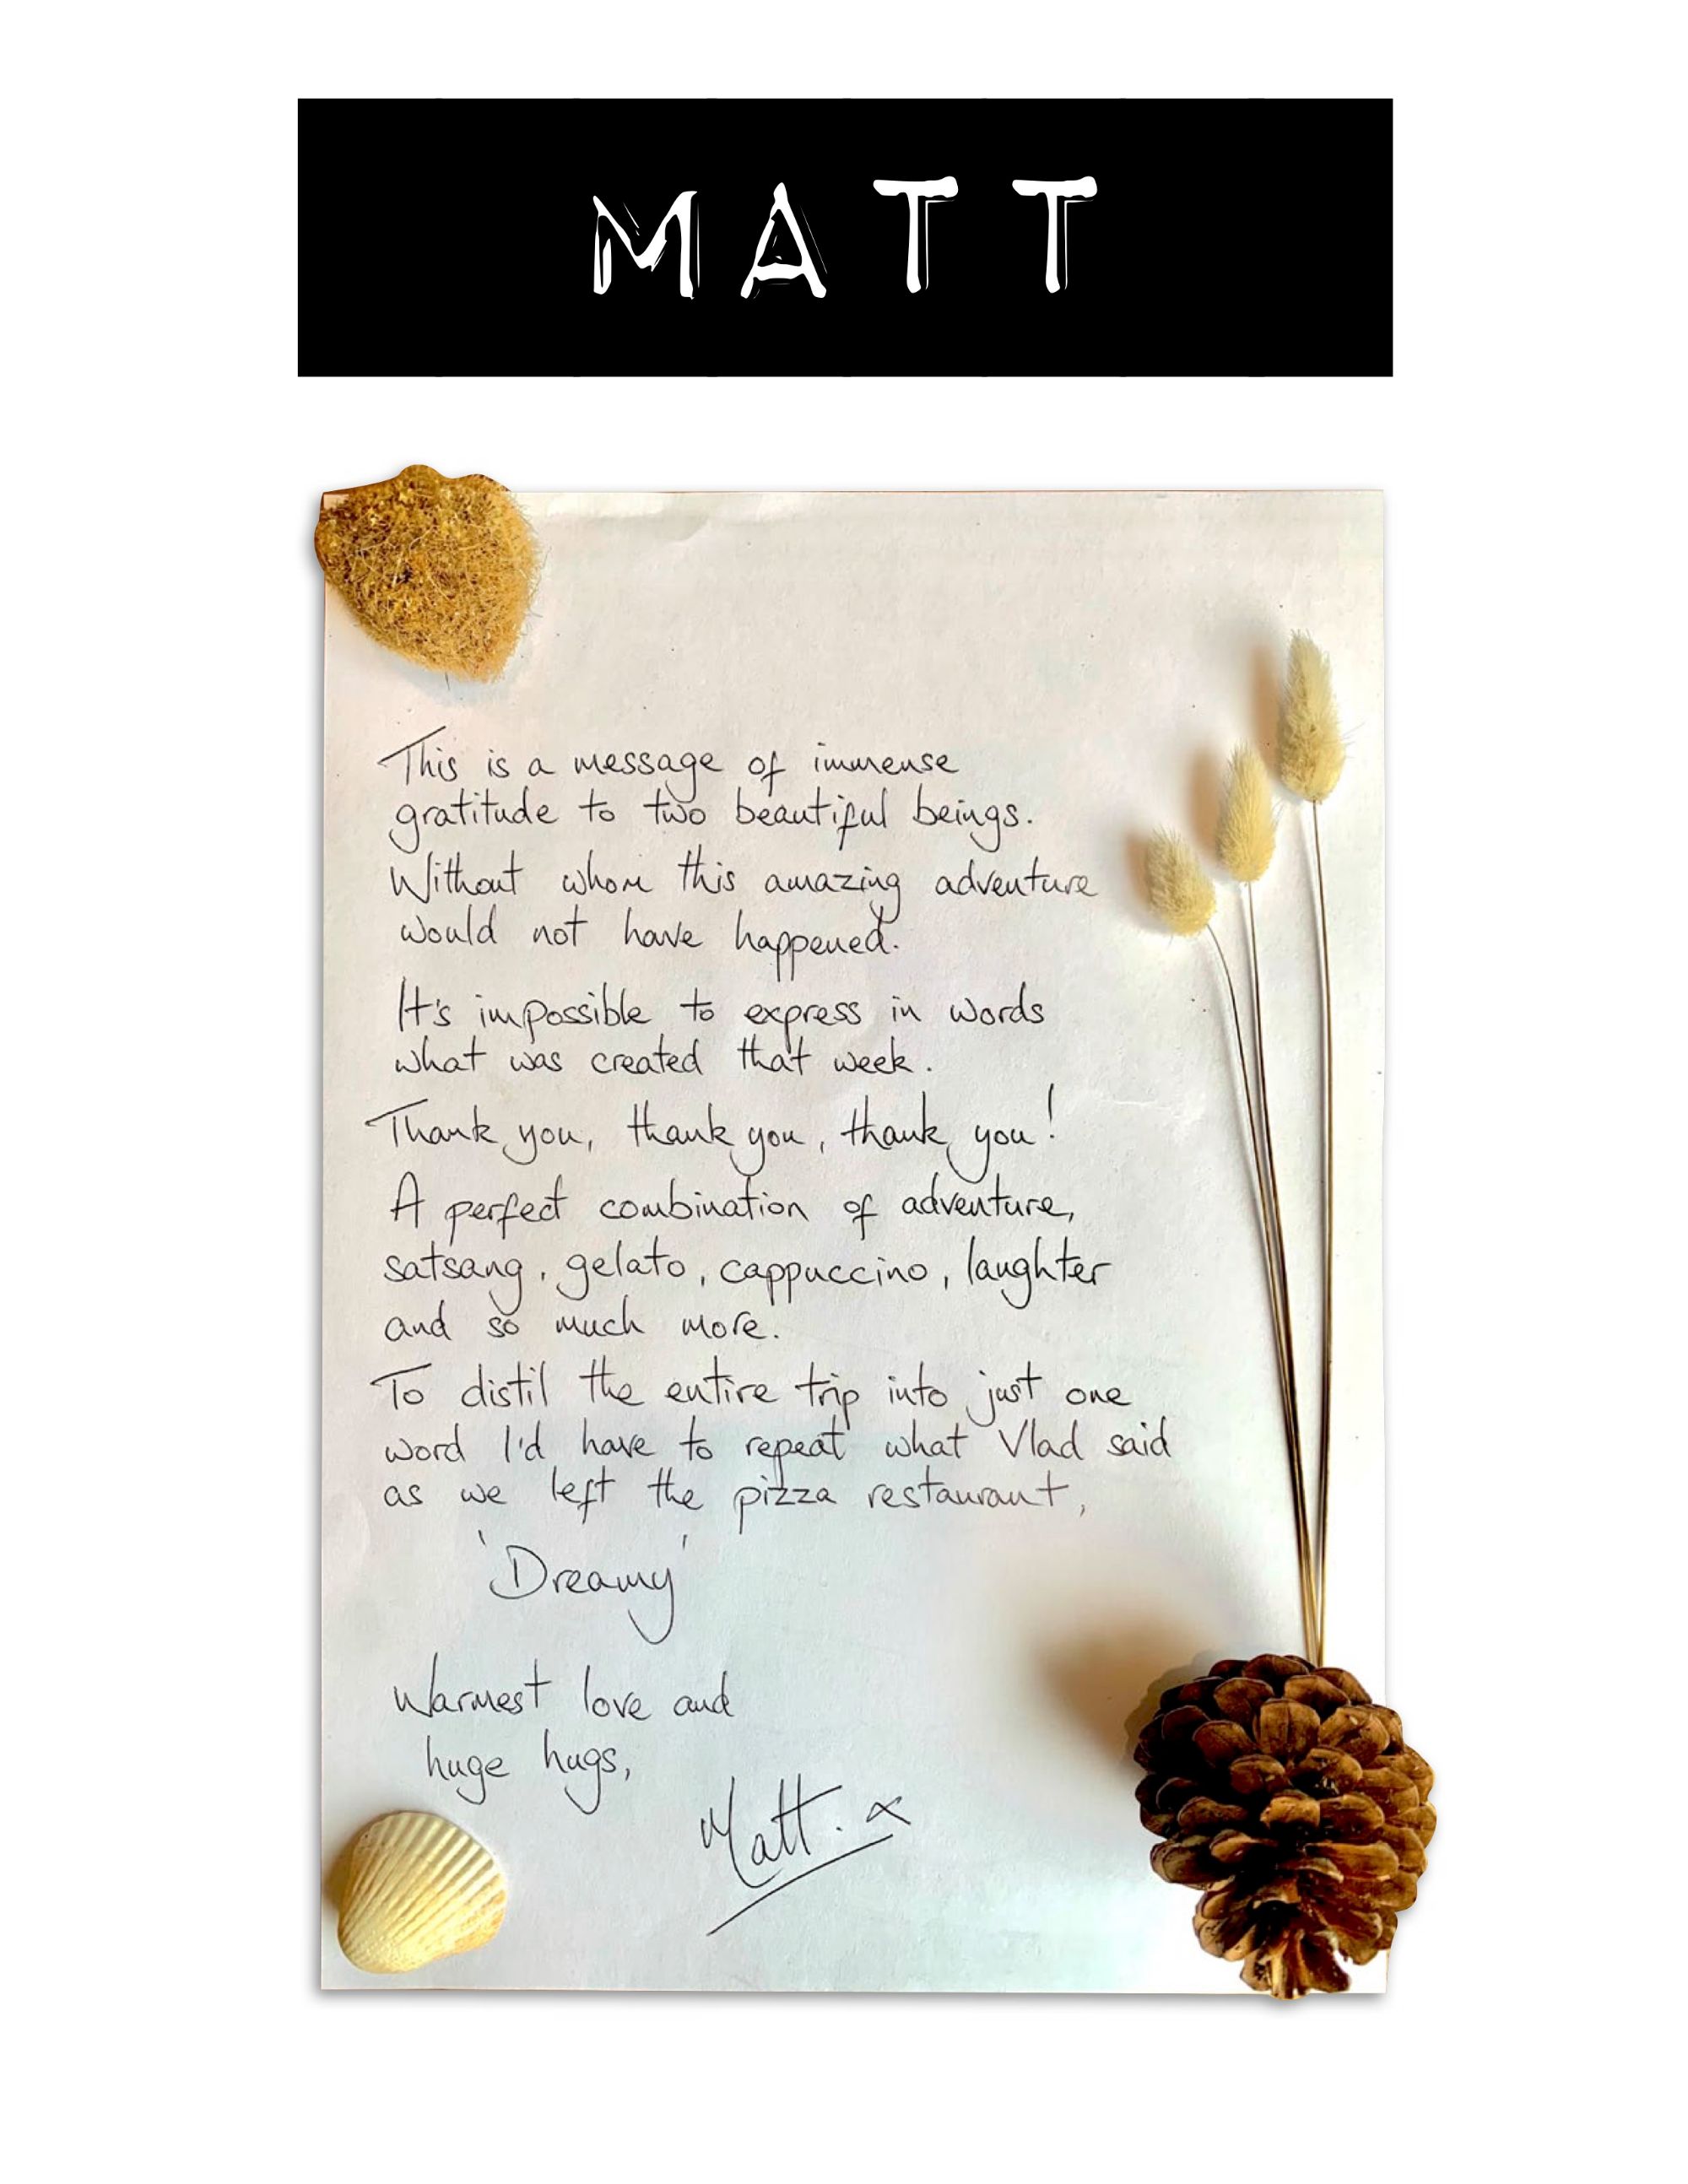 MATT
This is a message of immense
gratitude to two beautiful beings.
Without whom this amazing adventure
would not have happened.
It's impossible to express in words
what was created that week.
Thank you, thank you, thank you!
A perfect combination of adventure,
satsang, gelato, cappuccino, laughter
and so much more.
To distil the entire trip into just one
word I'd have to repeat what Vlad said
as we left the pizza restaurant,
'Dreamy'
Warmest love and
huge hugs,
Matt. x